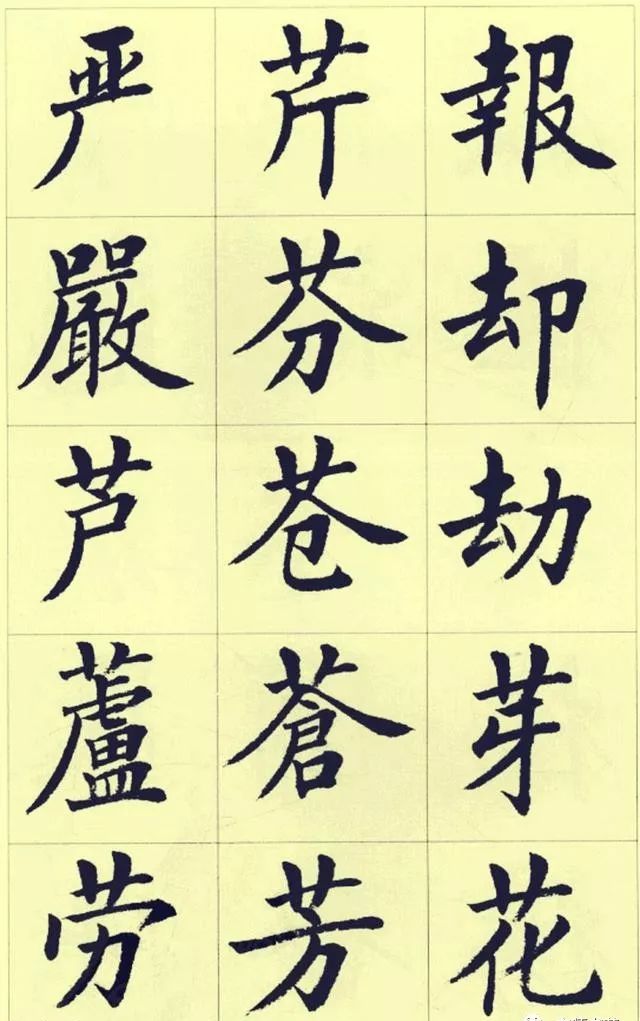 報却劫芽花
芹芬苍蒼芳
严嚴芦蘆劳